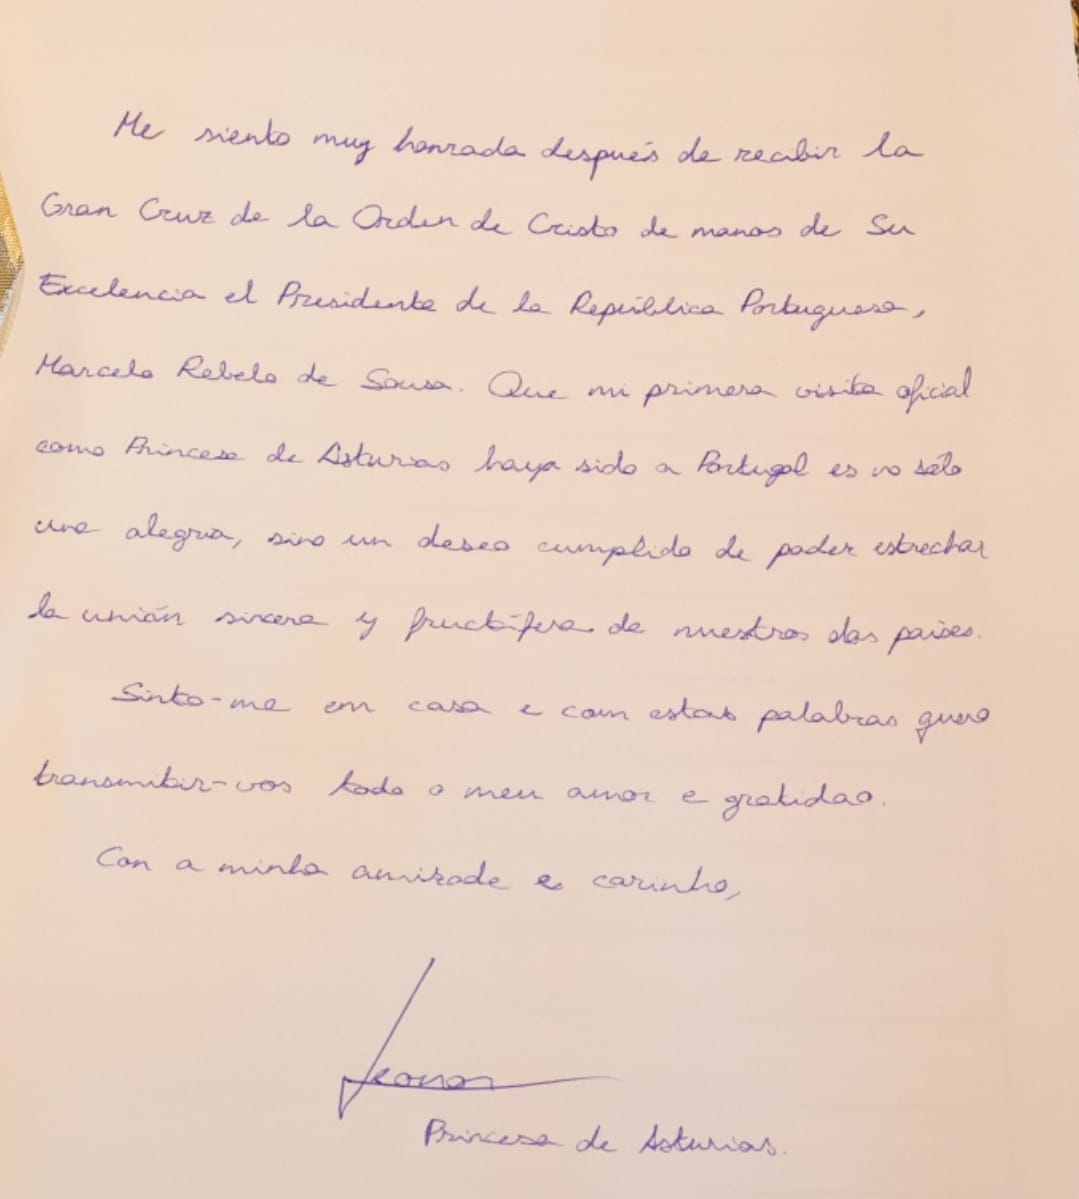 Me siento muy honrada después de recibir la
Gran Cruz de la Orden de Cristo de manos de Su
Excelencia el Presidente de la República Portuguesa,
Marcelo Rebelo de Sousa. Que mi primera visita oficial
como Princesa de Asturias haya sido a Portugal es no sólo
una alegría, sino un deseo cumplido de poder estrechar
la unión sincera y fructífera de nuestros dos países.
Sinto-me em casa e com estas palabras quero
transmitir-vos todo o meu amor e gratidao.
Con a minha amizade e carinho,
Leonor
Princesa de Asturias.